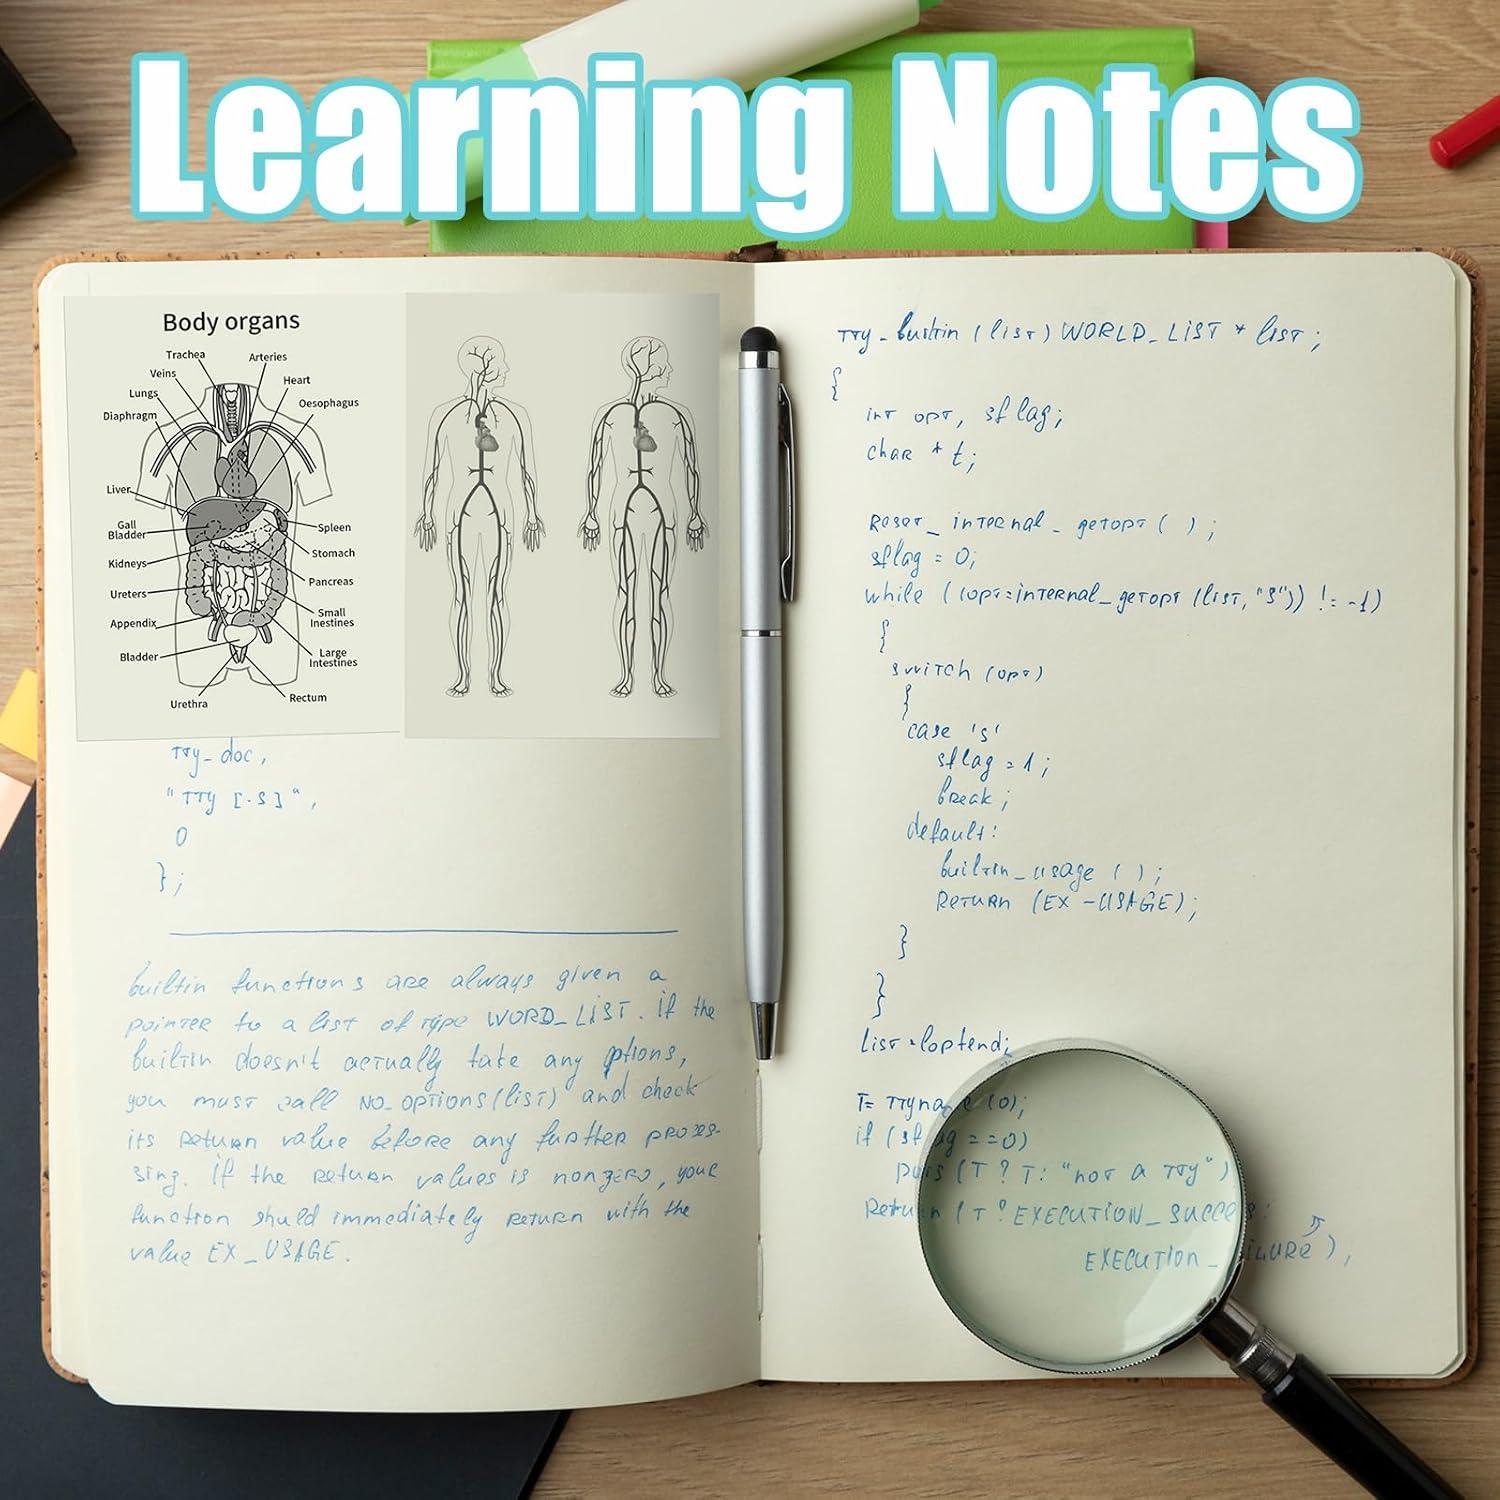 Learning Notes
Body organs
Trachea
Arteries
Veins
Heart
Lungs
Oesophagus
Diaphragm
Liver
Gall
Bladder
Spleen
Stomach
Kidneys
Pancreas
Ureters
Small
Inestines
Appendix
Large
Intestines
Bladder
Rectum
Urethra
TTy_doc,
"TTy [-S]",
0
};
builtin functions are always given a
pointer to a list of type WORD_LIST. if the
builtin doesn't actually take any options,
you must call NO_OPTIONS(list) and check
its return value before any further proces-
sing. if the return values is nonzero, your
function shuld immediately return with the
value EX_USAGE.
TTy_builtin (list) WORLD_LIST * list;
{
int opt, sflag;
char * t;
Reset_internal_getopt ( );
sflag = 0;
while ((opt=internal_getopt (list, "S")) != -1)
{
switch (opt)
{
case 's'
sflag = 1;
break;
default:
builtin_usage ( );
Return (EX-USAGE);
}
}
List = loptend;
T= TTyname (0);
if (sflag ==0)
puts (T ? T: "not a TTy")
Return (T ? EXECUTION_SUCCESS:
EXECUTION_FAILURE),